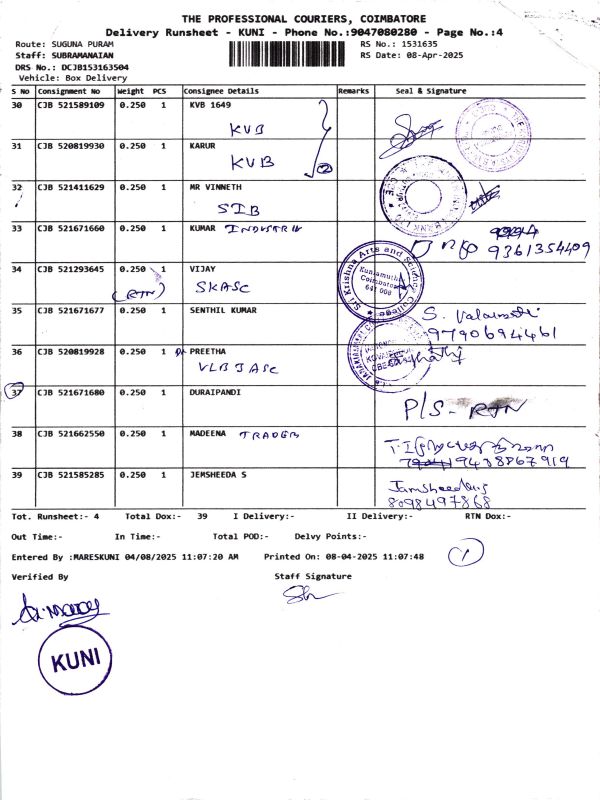 THE PROFESSIONAL COURIERS, COIMBATORE
Delivery Runsheet - KUNI - Phone No.:9047080280 - Page No.:4
Route: SUGUNA PURAM
RS No.: 1531635
Staff: SUBRAMANAIAN
RS Date: 08-Apr-2025
DRS No.: DCJB153163504
Vehicle: Box Delivery
S No Consignment No Weight PCS Consignee Details Remarks Seal & Signature
30 CJB 521589109 0.250 1 KVB 1649
KVB
31 CJB 520819930 0.250 1 KARUR
KVB 2
32 CJB 521411629 0.250 1 MR VINNETH
SIB
33 CJB 521671660 0.250 1 KUMAR
9361354409
34 CJB 521293645 0.250 1 VIJAY
(RTN) SKASC
Sri Krishna Arts and Science College
Kuniamuthur
Coimbatore
641 008
35 CJB 521671677 0.250 1 SENTHIL KUMAR
9790694461
36 CJB 520819928 0.250 1 PREETHA
VLB JASC
37 CJB 521671680 0.250 1 DURAIPANDI
P/S - RTN
38 CJB 521662550 0.250 1 MADEENA TRADER
39 CJB 521585285 0.250 1 JEMSHEEDA S
8098497868
Tot. Runsheet:- 4 Total Dox:- 39 I Delivery:- II Delivery:- RTN Dox:-
Out Time:- In Time:- Total POD:- Delvy Points:-
Entered By :MARESKUNI 04/08/2025 11:07:20 AM Printed On: 08-04-2025 11:07:48 1
Verified By Staff Signature
KUNI